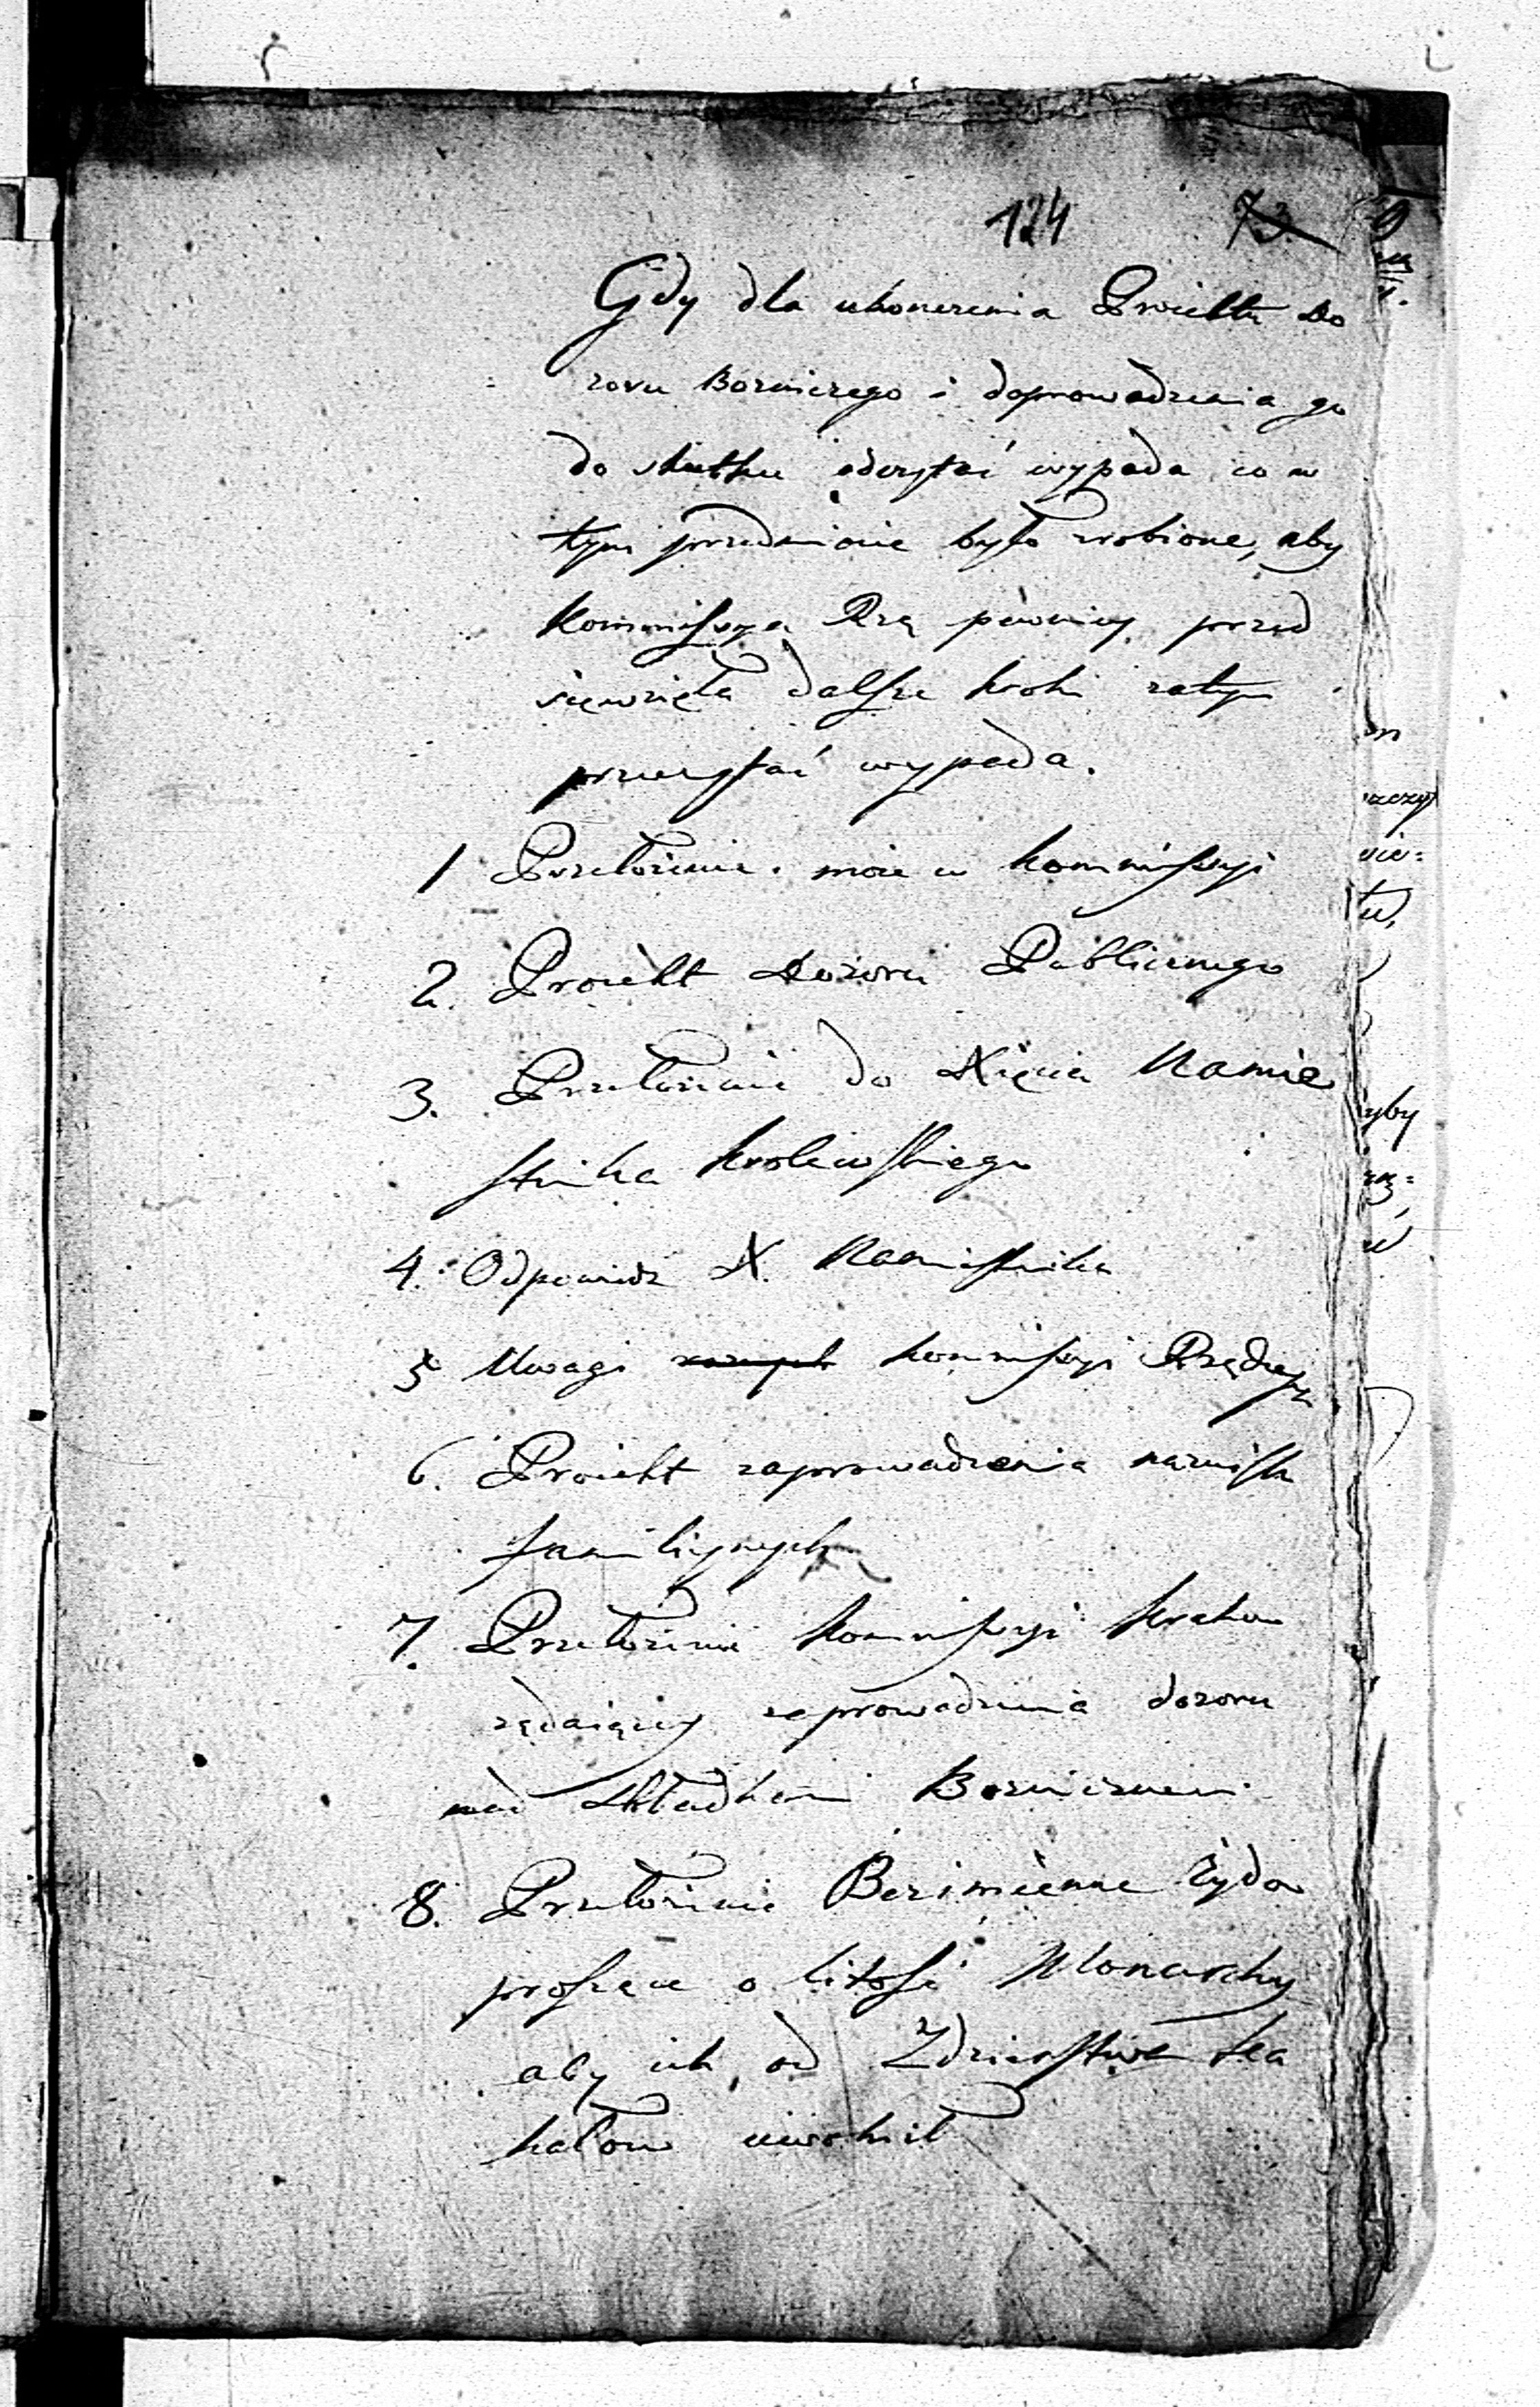 124 73.
Gdy dla ukonczenia Proiektu Do
zoru Bozniczego i doprowadzenia go
do skutku odczytać wypada co w
tym przedmiocie było zrobione, aby
Kommissya Rzą pewniey przed
sięwzięła dalsze kroki zatym
przeczytać wypada.
1 Przełożenie moie w Kommissyi
2. Proiekt Dozoru Publicznego
3. Przełożenie do Xięcia Namie
stnika Krolewskiego
4. Odpowiedz X. Namiestnika
5 Uwagi Kommissyi Rządzey
6. Proiekt zaprowadzenia nazwisk
familiynych
7. Przełożenie Kommissyi Krakow
żądaiącey zaprowadzenia dozoru
nad składkami Bozniczemi
8. Przełożenie Bezimienne Żydow
proszące o litość Monarchy
aby ich od Zdzierstwa Ka
hałow uwolnił